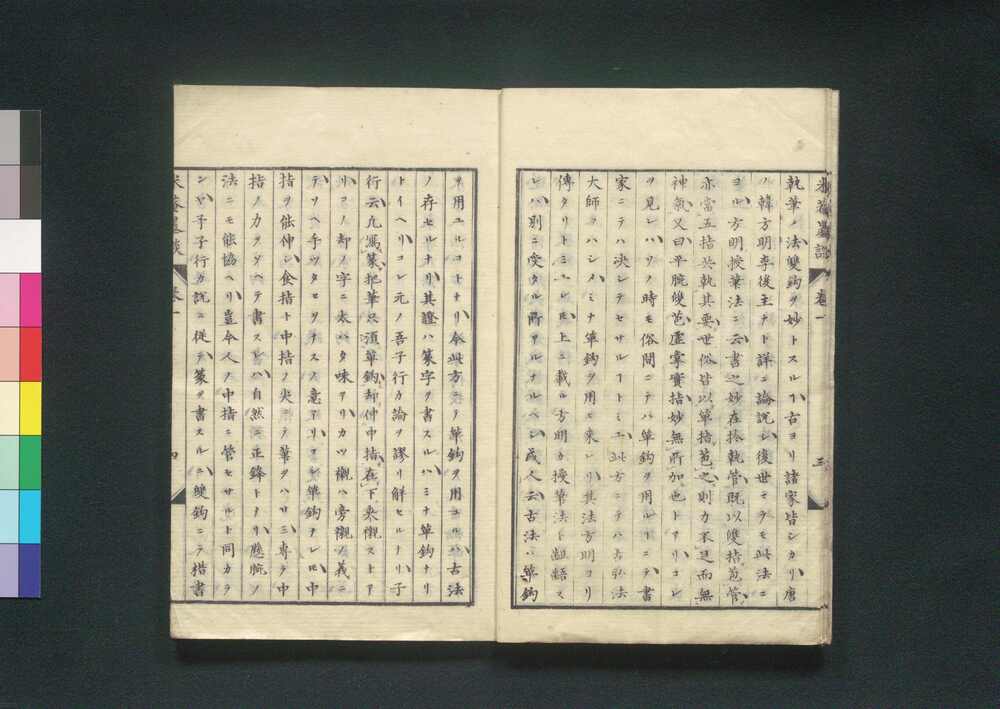 米菴墨談 卷一 三
執筆ノ法雙鉤ヲ妙トスルヿ古ヨリ諸家皆シカリ唐
ノ韓方明李後主ナト詳ニ論説シ後世ミラモ此法ニ
ヨル方明授筆法ニ云書之妙在於執管既以雙指苞管
亦當五指共執其要世俗皆以單指苞之則力不足而無
神氣又曰平腕雙苞虚掌實指妙無所加也トアリコレ
ヲ見レハソノ時モ俗間ニテハ單鉤ヲ用ルトニテ書
家ニテハ決シテセサルヿトミエ此方ニテハ古弘法
大師ヲハシメミナ單鉤ヲ用ヒ来レリ其法方明ヨリ
傳タリトミユレㇳ上ニ載ル方明カ授筆法ト齟齬ス
レハ別ニ受タル所アルナルヘシ或人云古法ハ單鉤
ヲ用ユルコトナリ今此方ニテ單鉤ヲ用ユルハ古法
ノ存セルナリ其證ハ篆字ヲ書スルハミナ單鉤ナリ
トイヘリコレ元ノ吾子行カ論ヲ謬リ解セルナリ子
行云凡寫篆把筆只須單鉤却伸中指在下夾襯ストア
リコノ却ノ字ニ太ハタ味アリカツ襯ハ旁襯ノ義ニ
テソヘ手ツタセワタラス意アリコレ單鉤ナレㇳ中
指ヲ能伸シ食指ト中指ノ尖ニテ筆ヲハサミ専ラ中
指ノカヲソヘテ書スレハ自然ニ正鋒トナリ懸腕ノ
法ニモ能協ヘリ豈今人ノ中指ニ管モサルト同カラ
ンヤ子子行カ説ニ従テ篆ヲ書スルニ雙鉤ニテ楷書
米菴墨談 卷一 四